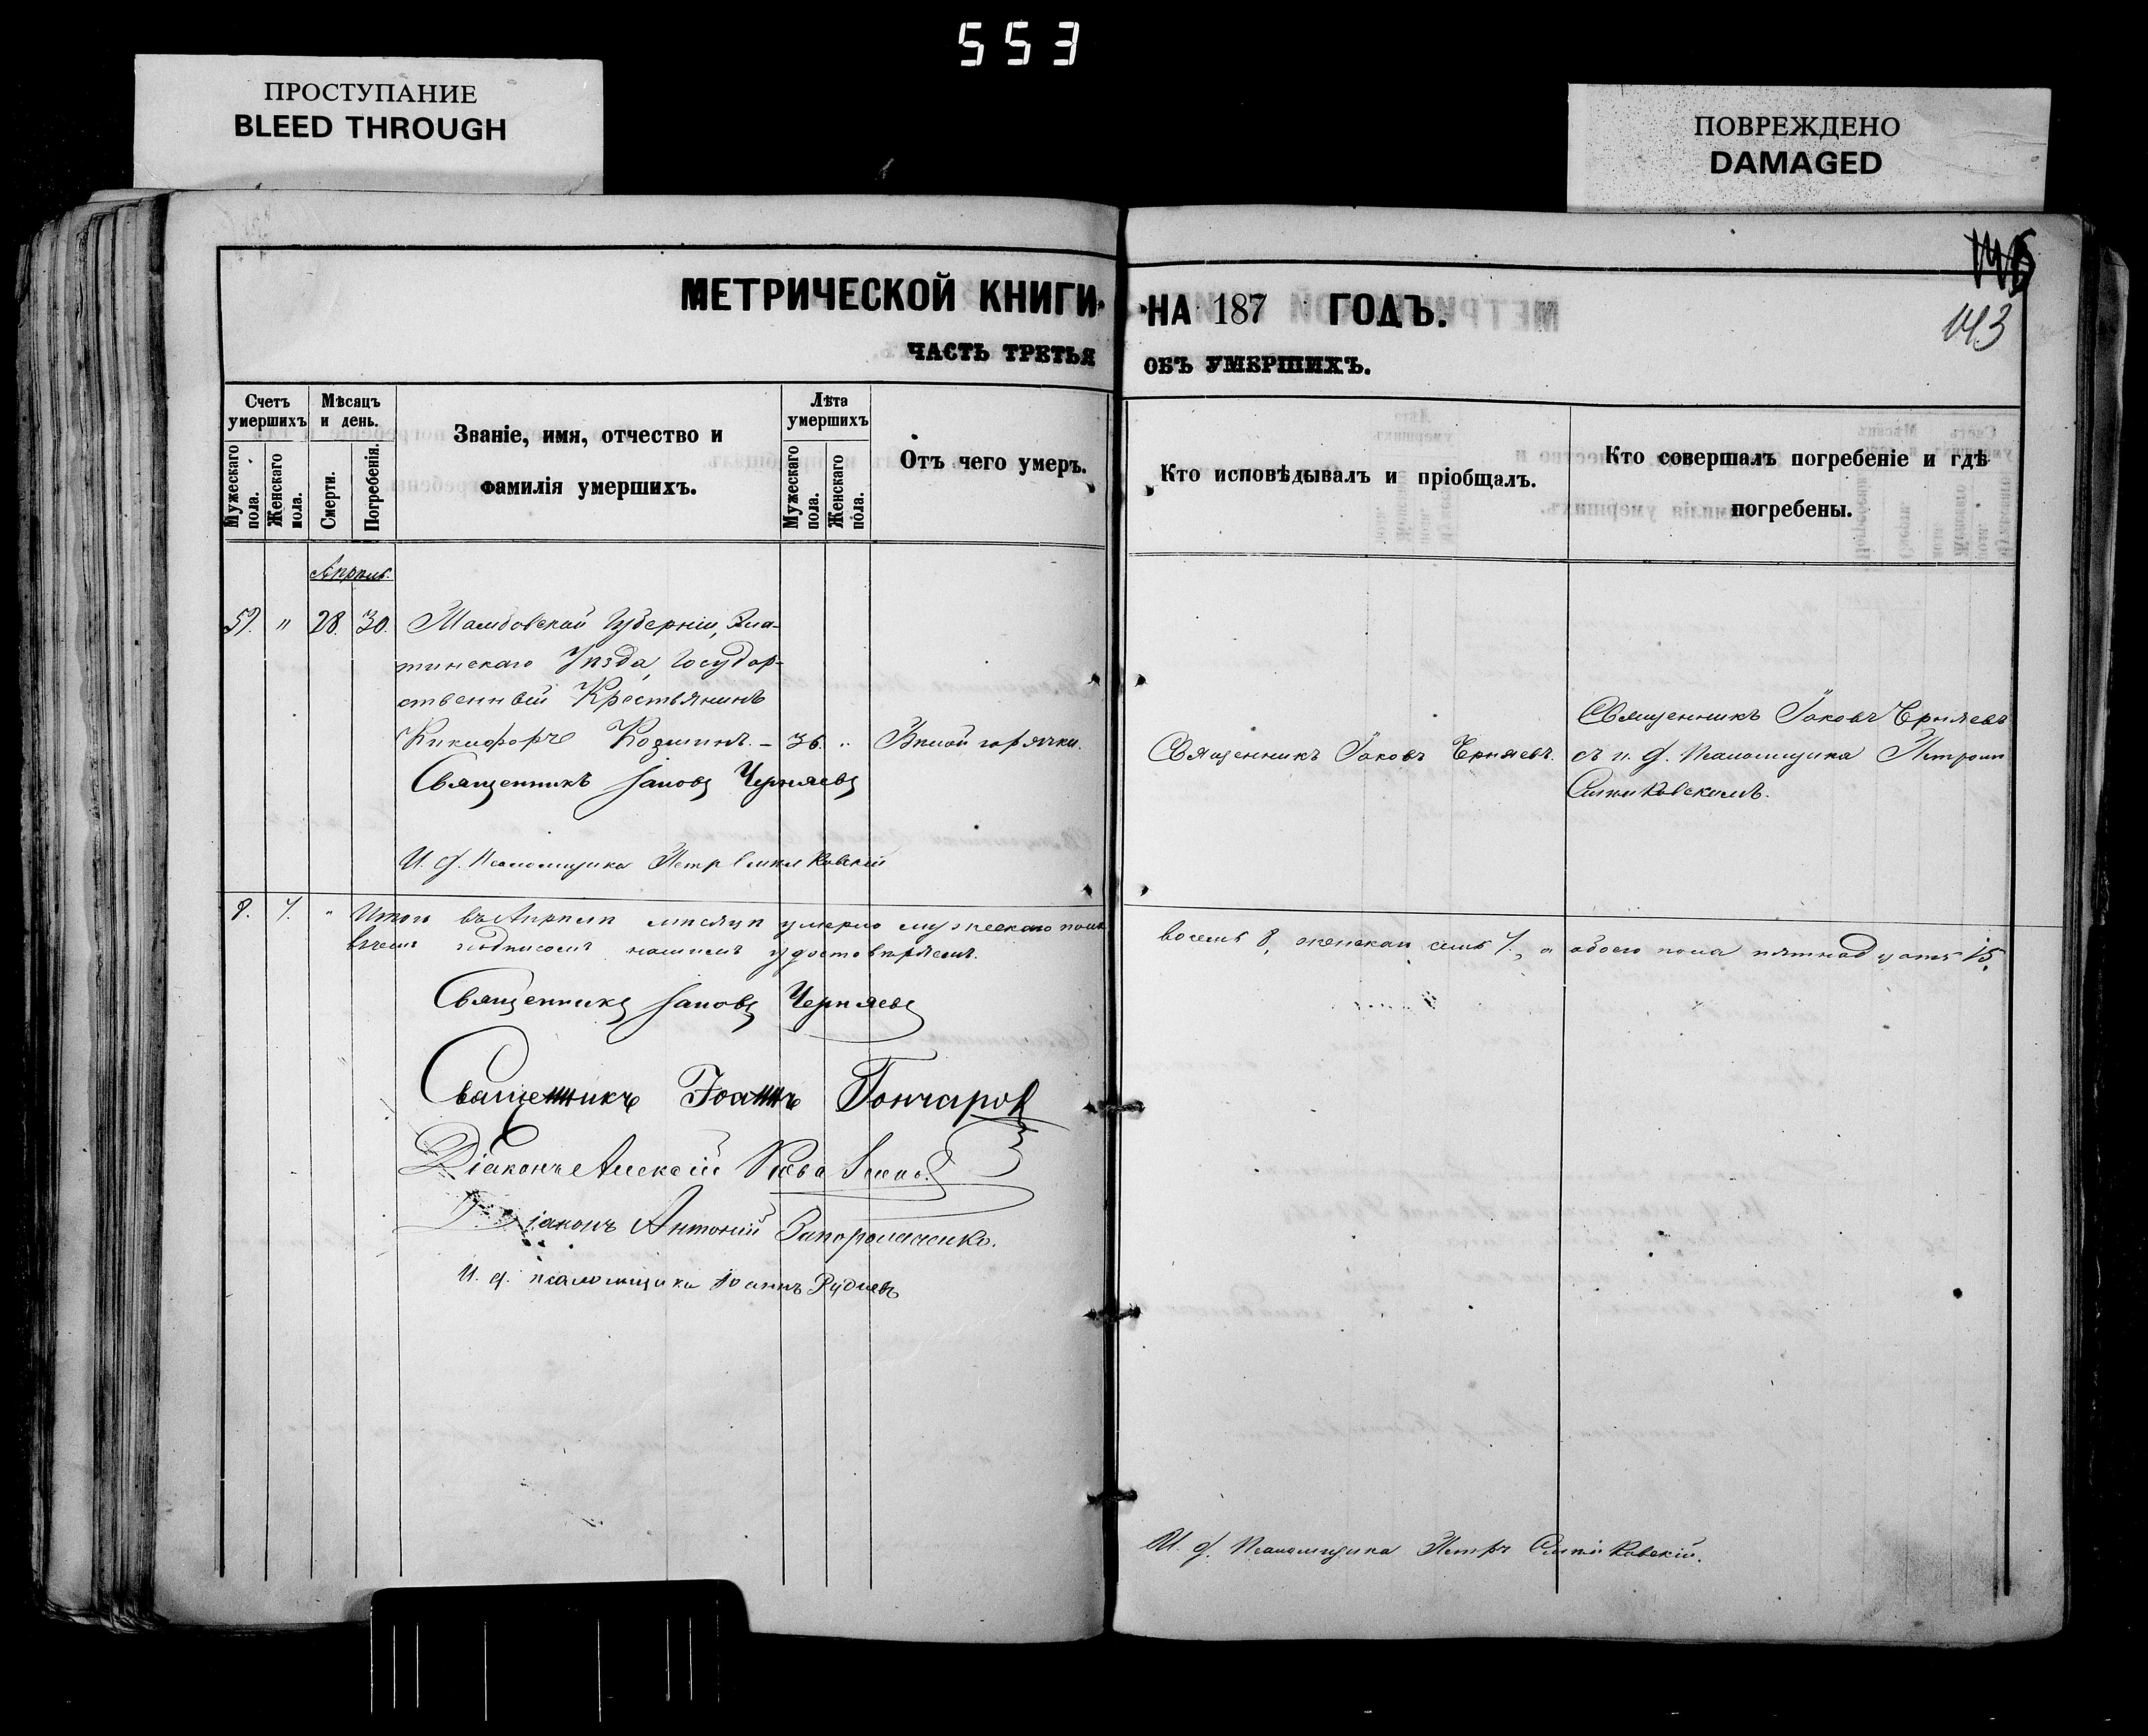 553
ПРОСТУПАНИЕ
BLEED THROUGH
ПОВРЕЖДЕНО
DAMAGED
МЕТРИЧЕСКОЙ КНИГИ НА 187 ГОДЪ.
143
ЧАСТЬ ТРЕТЬЯ ОБЪ УМЕРШИХЪ.
Счетъ умершихъ
Мужескаго пола.
Женскаго пола.
Мѣсяцъ и день.
Смерти.
Погребенія.
Званіе, имя, отчество и
фамилія умершихъ.
Лѣта умершихъ
Мужескаго пола.
Женскаго пола.
Отъ чего умеръ.
Кто исповѣдывалъ и пріобщалъ.
Кто совершалъ погребеніе и гдѣ
погребены.
Апрѣль.
59. " 28. 30. Тамбовской Губерніи, Ела-
тинскаго Уѣзда, Государ-
ственный Крестьянинъ
Никифоръ Козминъ. – 36. " горячки.
Священникъ Іаковъ Черняевъ
И. д. Псаломщика Петръ
Священникъ Іаковъ Черняевъ.
Священникъ Іаковъ Черняевъ
съ и. д. Псаломщика Петромъ
8. 7. " Итого въ Апрѣлѣ мѣсяцѣ умерло мужескаго пола восемь 8, женскаго семь 7, а обоего пола пятнадцать 15.
въ чемъ подписомъ нашимъ удостовѣряемъ.
Священникъ Іаковъ Черняевъ
Священникъ Іоаннъ Гончаровъ
Діаконъ Алексѣй
Діаконъ Антоній Запорожченко.
И. д. псаломщика Іоаннъ Рудневъ
И. д. Псаломщика Петръ